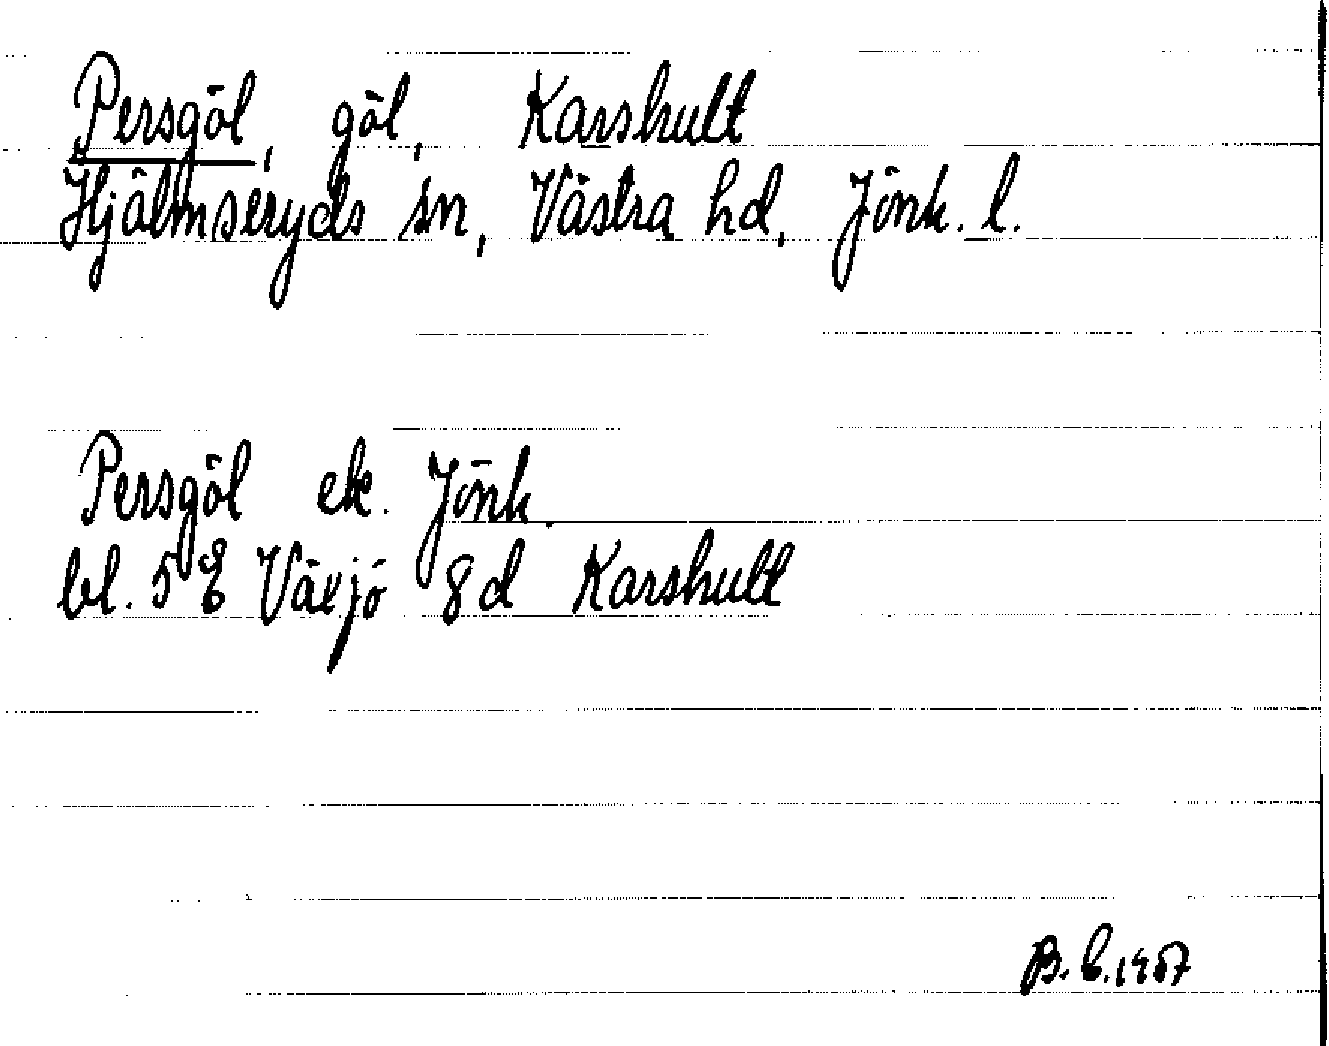 Persgöl, göl, Karshult
Hjälmseryds sn, Västra hd, Jönk. l.
Persgöl ek. Jönk.
bl. 5 E Växjö 8d Karshult
B. E. 1967